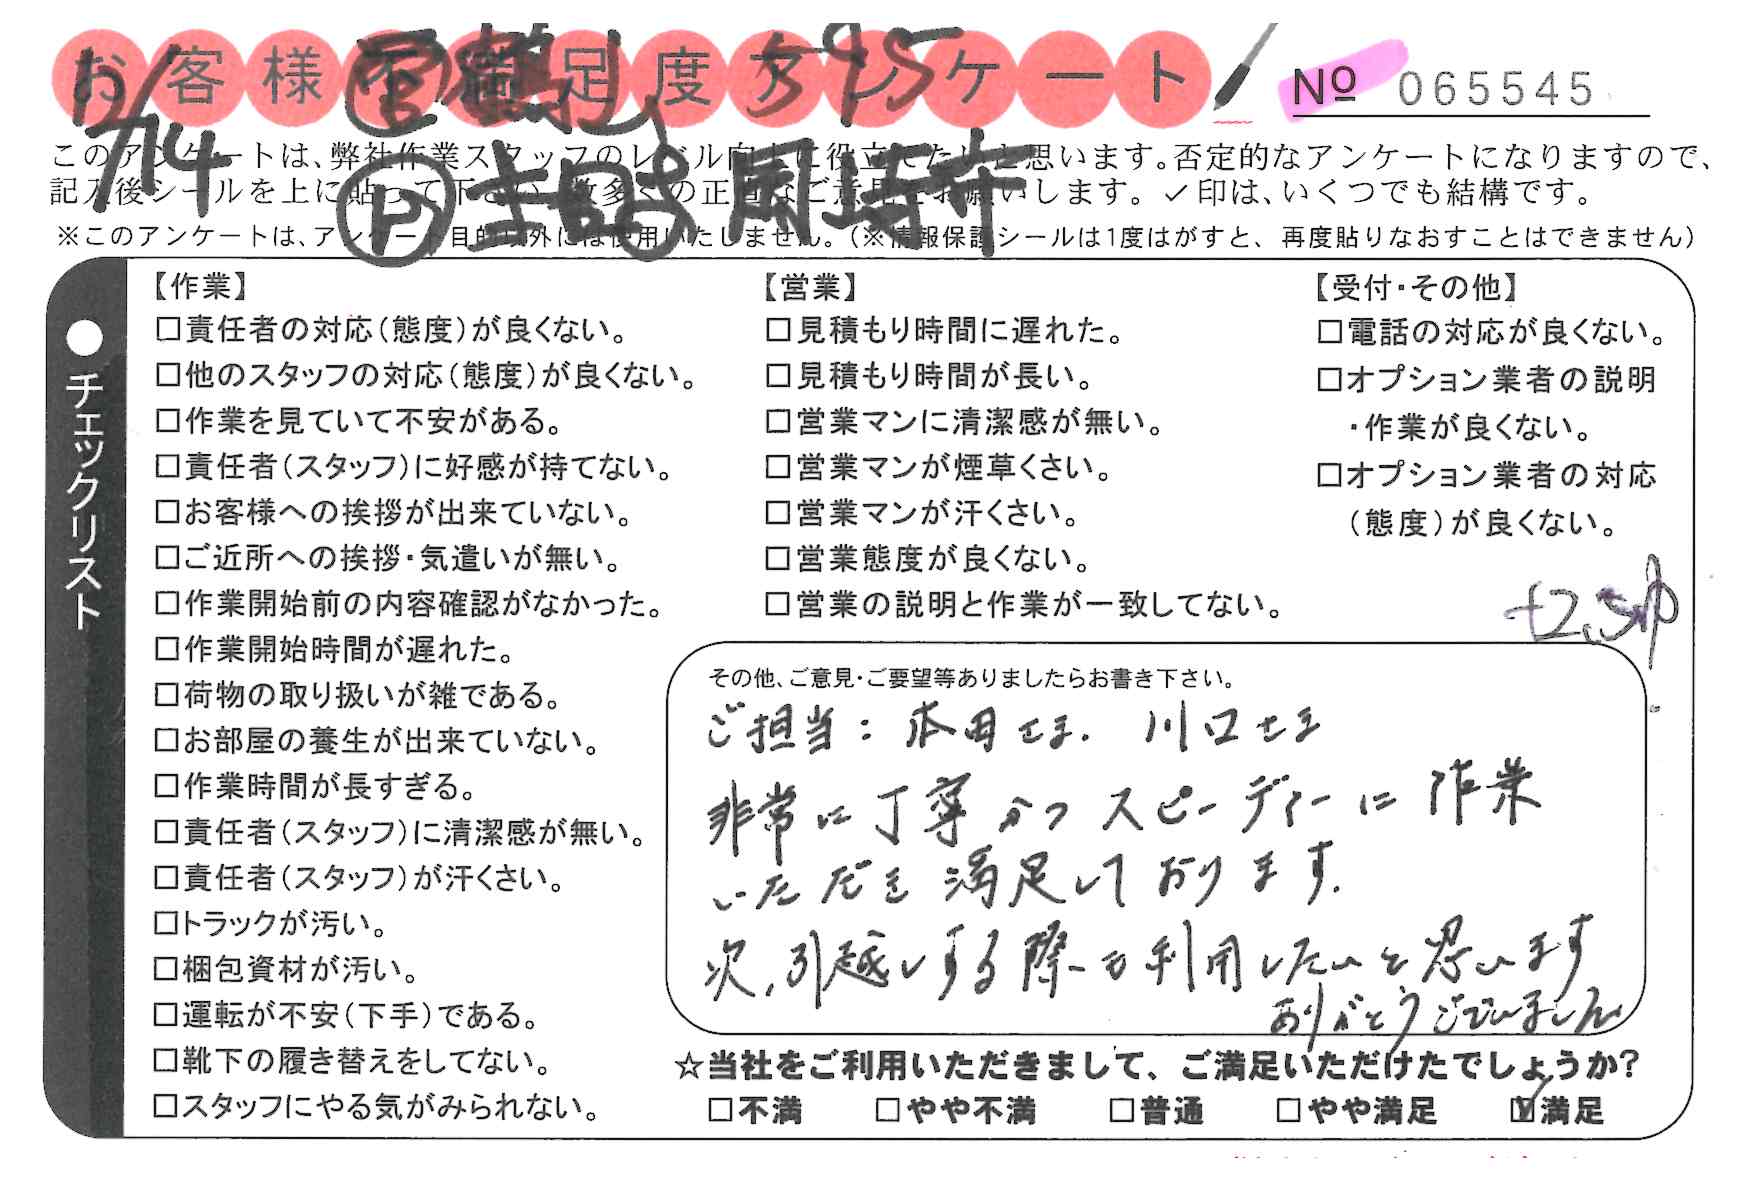 お客様不満足度アンケート
№ 065545
12/14
395
Ⓟ 吉田 岡崎
このアンケートは、弊社作業スタッフのレベル向上に役立てたいと思います。否定的なアンケートになりますので、
記入後シールを上に貼って下さい。数多くの正直なご意見をお願いします。✓印は、いくつでも結構です。
※このアンケートは、アンケート目的以外には使用いたしません。(※情報保護シールは1度はがすと、再度貼りなおすことはできません)
●チェックリスト
【作業】
□責任者の対応(態度)が良くない。
□他のスタッフの対応(態度)が良くない。
□作業を見ていて不安がある。
□責任者(スタッフ)に好感が持てない。
□お客様への挨拶が出来ていない。
□ご近所への挨拶・気遣いが無い。
□作業開始前の内容確認がなかった。
□作業開始時間が遅れた。
□荷物の取り扱いが雑である。
□お部屋の養生が出来ていない。
□作業時間が長すぎる。
□責任者(スタッフ)に清潔感が無い。
□責任者(スタッフ)が汗くさい。
□トラックが汚い。
□梱包資材が汚い。
□運転が不安(下手)である。
□靴下の履き替えをしてない。
□スタッフにやる気がみられない。
【営業】
□見積もり時間に遅れた。
□見積もり時間が長い。
□営業マンに清潔感が無い。
□営業マンが煙草くさい。
□営業マンが汗くさい。
□営業態度が良くない。
□営業の説明と作業が一致してない。
【受付・その他】
□電話の対応が良くない。
□オプション業者の説明
・作業が良くない。
□オプション業者の対応
(態度)が良くない。
その他、ご意見・ご要望等ありましたらお書き下さい。
ご担当：本田さま. 川口さま
非常に丁寧かつスピーディーに作業
いただき満足しております.
次、引越しする際も利用したいと思います
ありがとうございました
☆当社をご利用いただきまして、ご満足いただけたでしょうか?
□不満 □やや不満 □普通 □やや満足 ☑満足